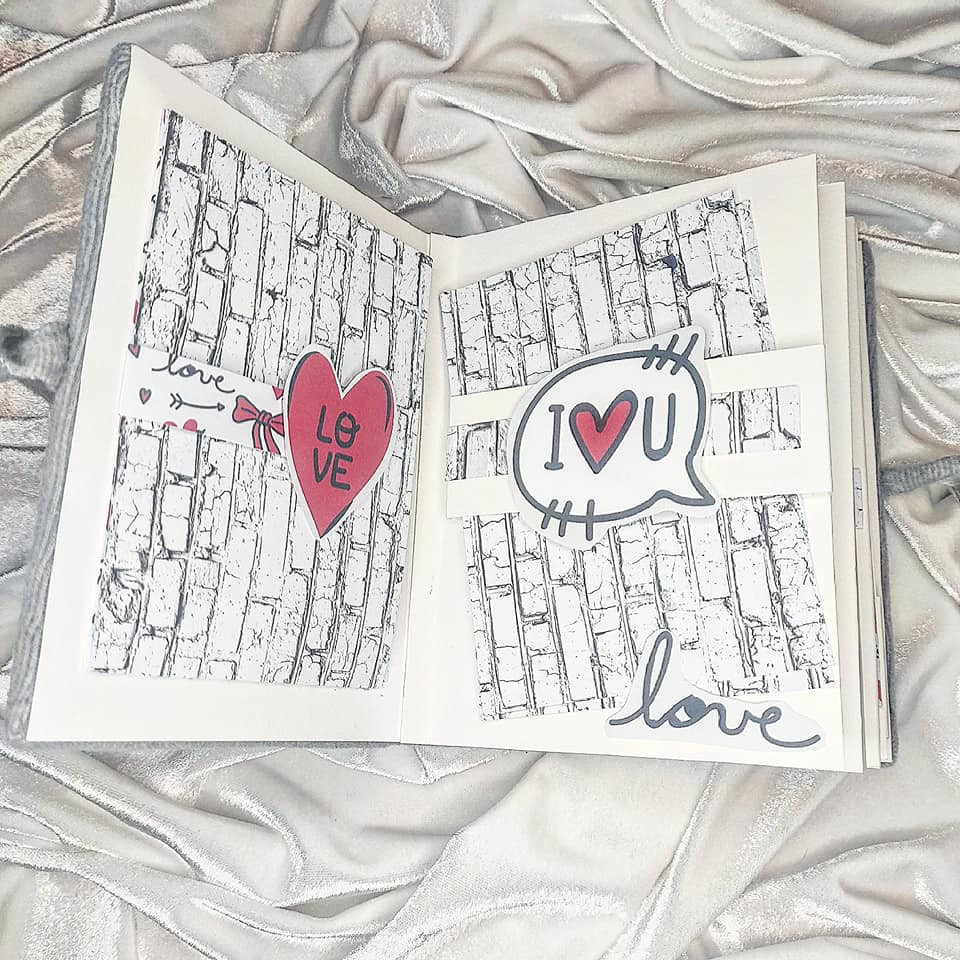 love
LO
VE
I♥U
love